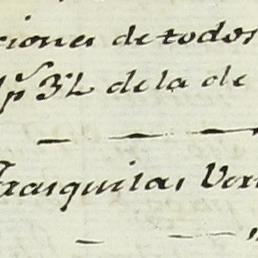 ciones de todos
de la de
Trasquilas Ver